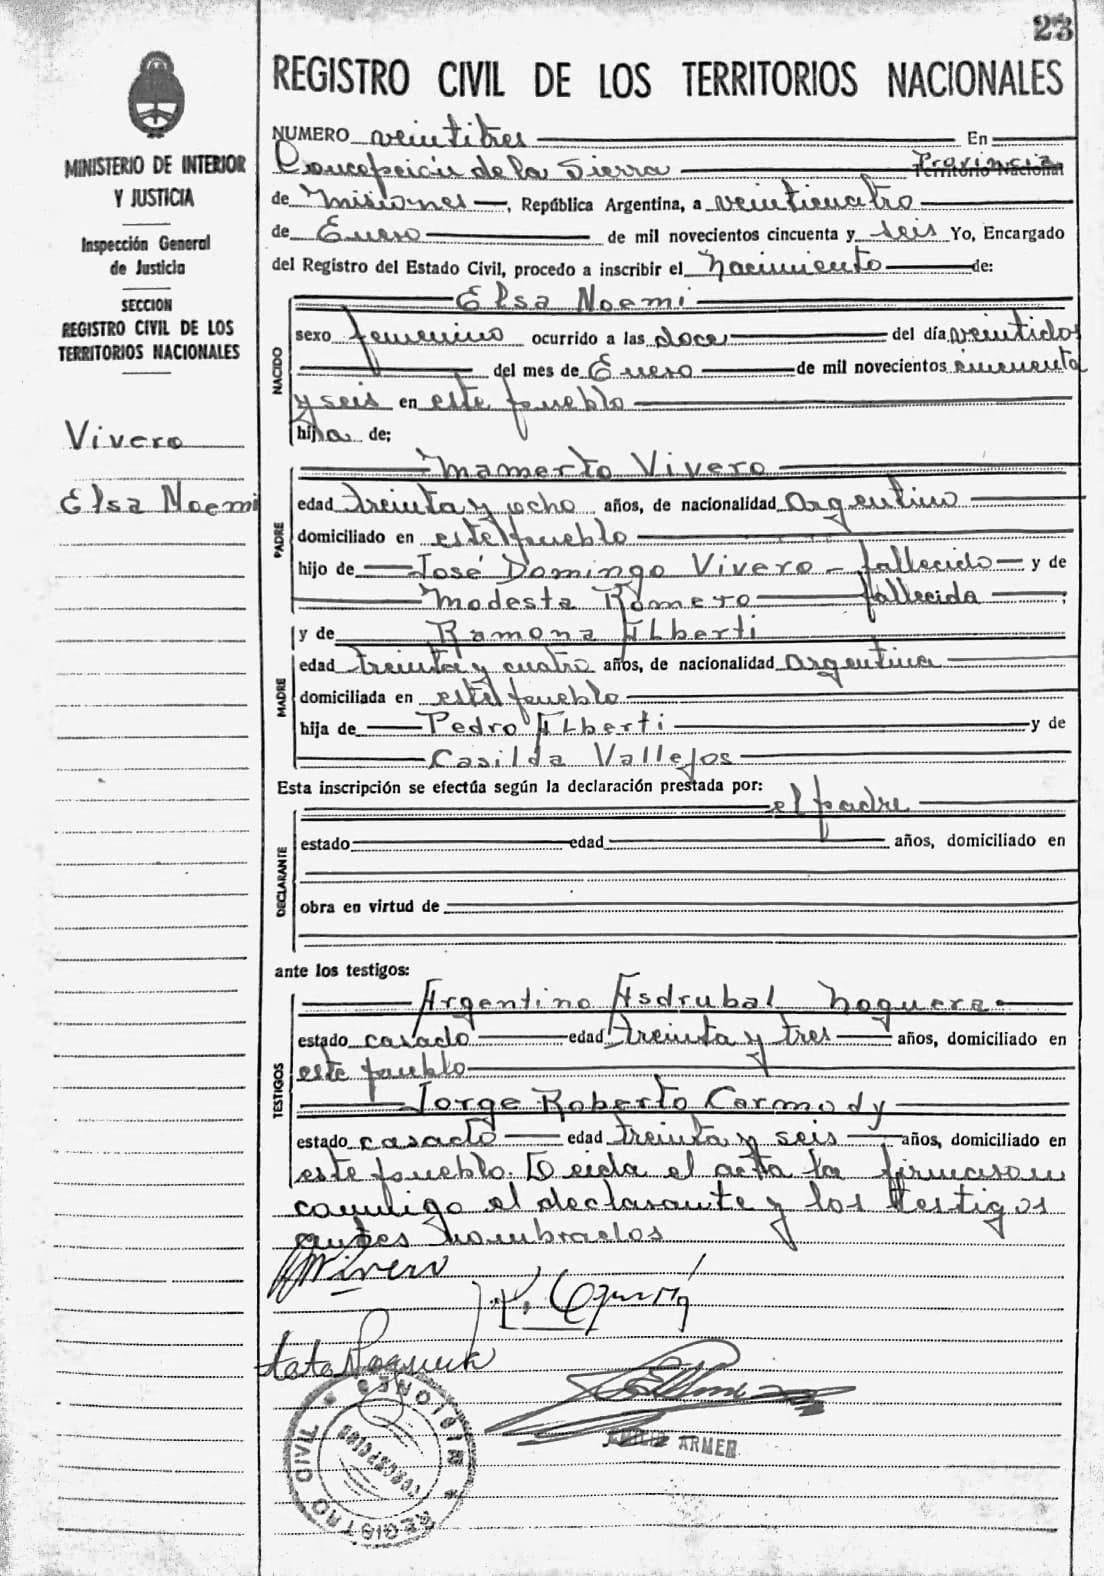 23
MINISTERIO DE INTERIOR
Y JUSTICIA
Inspección General
de Justicia
SECCION
REGISTRO CIVIL DE LOS
TERRITORIOS NACIONALES
Vivero
Elsa Noemi
REGISTRO CIVIL DE LOS TERRITORIOS NACIONALES
NUMERO veintitres En
Concepción de la Sierra Provincia Territorio Nacional
de Misiones, República Argentina, a veinticuatro
de Enero de mil novecientos cincuenta y seis Yo, Encargado
del Registro del Estado Civil, procedo a inscribir el nacimiento de:
NACIDO
Elsa Noemi
sexo femenino ocurrido a las doce del día veintidos
del mes de Enero de mil novecientos cincuenta
y seis en este pueblo
hija de;
PADRE
Mamerto Vivero
edad treinta y ocho años, de nacionalidad Argentino
domiciliado en este pueblo
hijo de José Domingo Vivero - fallecido y de
Modesta Romero fallecida ;
MADRE
y de Ramona Alberti
edad treinta y cuatro años, de nacionalidad argentina
domiciliada en este pueblo
hija de Pedro Alberti y de
Casilda Vallejos
Esta inscripción se efectúa según la declaración prestada por:
DECLARANTE
el padre
estado edad años, domiciliado en
obra en virtud de
ante los testigos:
TESTIGOS
Argentino Asdrubal Noguera
estado casado edad treinta y tres años, domiciliado en
este pueblo
Jorge Roberto Carmody
estado casado edad treinta y seis años, domiciliado en
este pueblo. Leida el acta la firmaron
conmigo el declarante y los testigos
antes nombrados
MVivero
tato Noguera
ARMER
REGISTRO CIVIL * MISIONES *
CONCEPCION